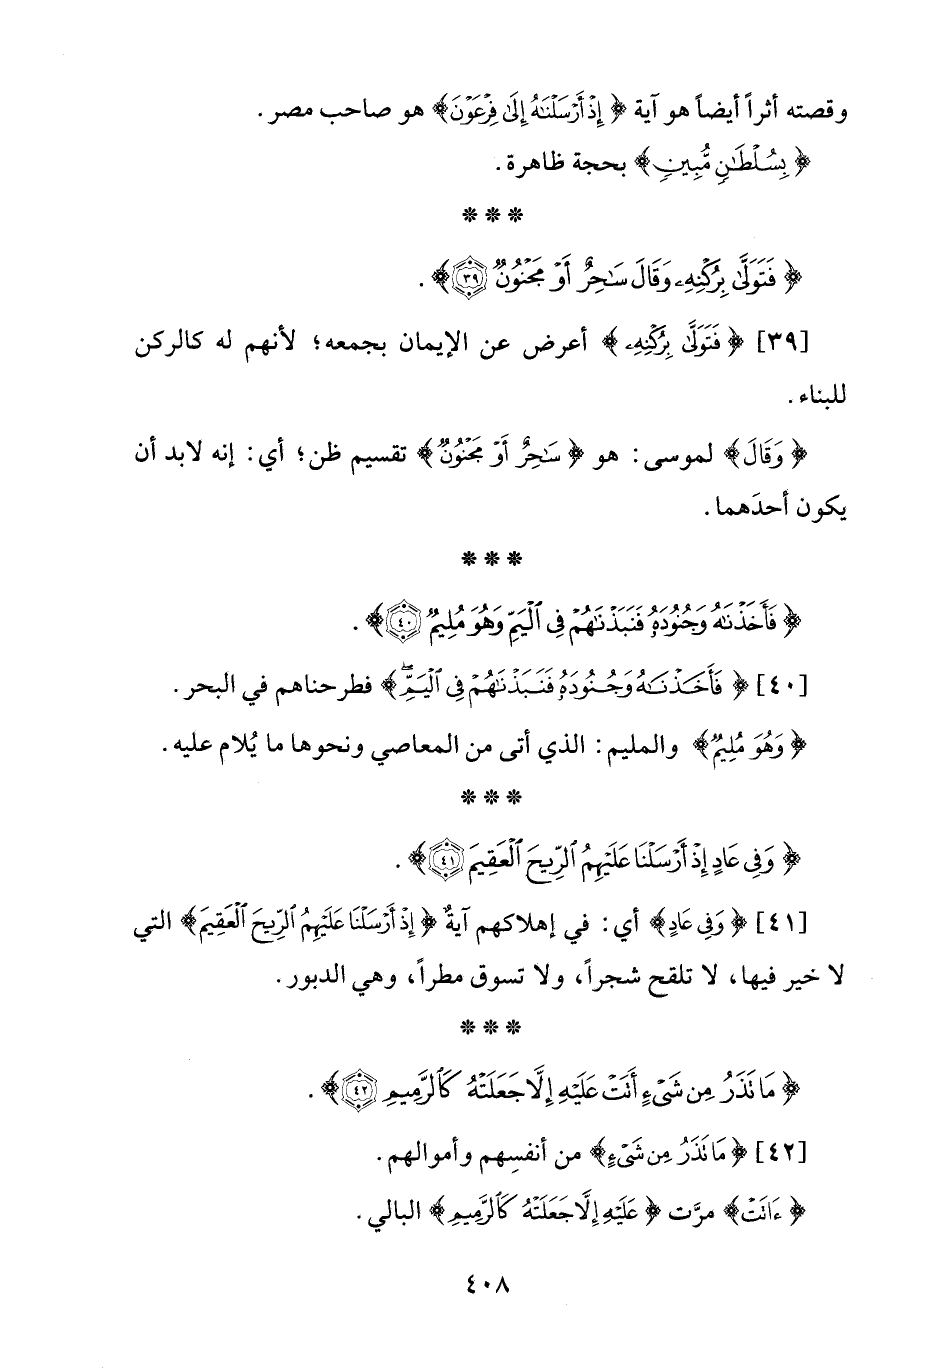 وقصته أثراً أيضاً هو آية ﴿ إِذْ أَرْسَلْنَٰهُ إِلَىٰ فِرْعَوْنَ﴾ هو صاحب مصر.
﴿ بِسُلْطَٰنٍ مُّبِينٍ ﴾ بحجة ظاهرة.
* * *
﴿ فَتَوَلَّىٰ بِرُكْنِهِۦ وَقَالَ سَٰحِرٌ أَوْ مَجْنُونٌ ٣٩﴾.
[٣٩] ﴿ فَتَوَلَّىٰ بِرُكْنِهِۦ ﴾ أعرض عن الإيمان بجمعه؛ لأنهم له كالركن
للبناء.
﴿ وَقَالَ﴾ لموسى: هو ﴿ سَٰحِرٌ أَوْ مَجْنُونٌ﴾ تقسيم ظن؛ أي: إنه لابد أن
يكون أحدَهما.
* * *
﴿ فَأَخَذْنَٰهُ وَجُنُودَهُۥ فَنَبَذْنَٰهُمْ فِى ٱلْيَمِّ وَهُوَ مُلِيمٌ ٤٠﴾.
[٤٠] ﴿ فَأَخَذْنَٰهُ وَجُنُودَهُۥ فَنَبَذْنَٰهُمْ فِى ٱلْيَمِّ ۖ﴾ فطرحناهم في البحر.
﴿ وَهُوَ مُلِيمٌ﴾ والمليم: الذي أتى من المعاصي ونحوها ما يُلام عليه.
* * *
﴿ وَفِى عَادٍ إِذْ أَرْسَلْنَا عَلَيْهِمُ ٱلرِّيحَ ٱلْعَقِيمَ ٤١﴾.
[٤١] ﴿ وَفِى عَادٍ﴾ أي: في إهلاكهم آيةٌ ﴿ إِذْ أَرْسَلْنَا عَلَيْهِمُ ٱلرِّيحَ ٱلْعَقِيمَ﴾ التي
لا خير فيها، لا تلقح شجراً، ولا تسوق مطراً، وهي الدبور.
* * *
﴿ مَا تَذَرُ مِن شَىْءٍ أَتَتْ عَلَيْهِ إِلَّا جَعَلَتْهُ كَٱلرَّمِيمِ ٤٢﴾.
[٤٢] ﴿ مَا تَذَرُ مِن شَىْءٍ﴾ من أنفسهم وأموالهم.
﴿ ءَاتَتْ﴾ مرَّت ﴿ عَلَيْهِ إِلَّا جَعَلَتْهُ كَٱلرَّمِيمِ﴾ البالي.
٤٠٨